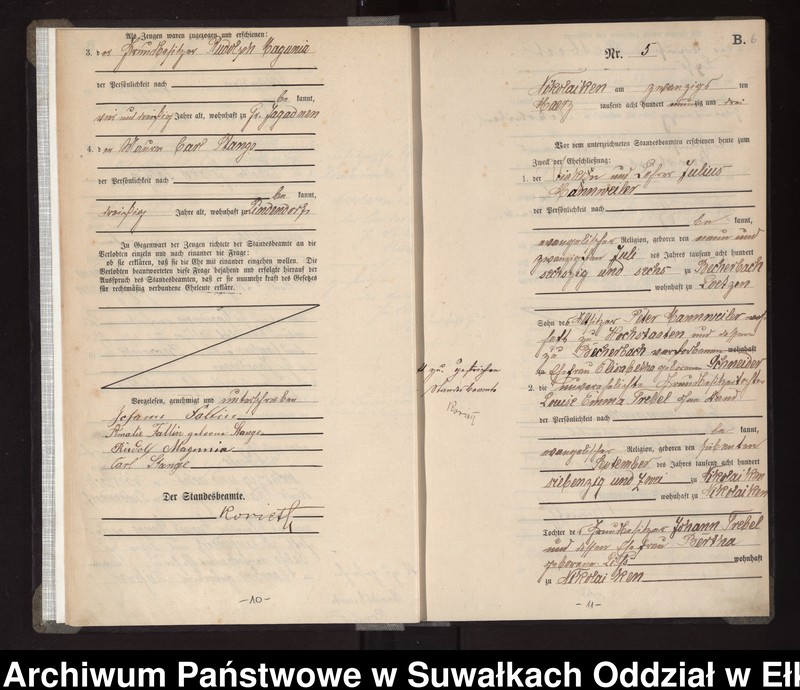 Als Zeugen waren zugezogen und erschienen:
3. der Grundbesitzer Rudolph Magunia
der Persönlichkeit nach
be kannt,
vier und dreißig Jahre alt, wohnhaft zu Gr. Jagodnen
4. der Maurer Carl Stange
der Persönlichkeit nach
be kannt,
dreißig Jahre alt, wohnhaft zu Lindendorf
In Gegenwart der Zeugen richtete der Standesbeamte an die
Verlobten einzeln und nach einander die Frage:
ob sie erklären, daß sie die Ehe mit einander eingehen wollen. Die
Verlobten beantworteten diese Frage bejahend und erfolgte hierauf der
Ausspruch des Standesbeamten, daß er sie nunmehr kraft des Gesetzes
für rechtmäßig verbundene Eheleute erkläre.
Vorgelesen, genehmigt und unterschrieben
Johann Fallin
Amalie Fallin geborene Stange
Rudolf Magunia
Carl Stange
Der Standesbeamte.
—10—
B.
Nr. 5
Nikolaiken am zwanzigs ten
Maerz tausend acht hundert neunzig und drei
Vor dem unterzeichneten Standesbeamten erschienen heute zum
Zweck der Eheschließung:
1. der und Lehrer Julius
Mannweiler
der Persönlichkeit nach
be kannt,
evangelischer Religion, geboren den neun und
zwanzigsten Juli des Jahres tausend acht hundert
sechszig und sechs zu Becherbach
wohnhaft zu Loetzen
Sohn des Altsitzer Peter Mannweiler wohn-
haft zu Hochstaetten und dessen
zu Becherbach verstorbenen wohnhaft
Ehefrau Elisabetha geborene Schneider
2. die unverehelichte Grundbesitzertochter
Louise Emma Trebel ohne Stand
der Persönlichkeit nach
be kannt,
evangelischer Religion, geboren den siebenten
September des Jahres tausend acht hundert
siebenzig und zwei zu Nikolaiken
wohnhaft zu Nikolaiken
zu gestrichen
Standesbeamte
Tochter des Grundbesitzer Johann Trebel
und dessen Ehefrau Bertha
geborene wohnhaft
zu Nikolaiken
—11—
Archiwum Państwowe w Suwałkach Oddział w Ełk